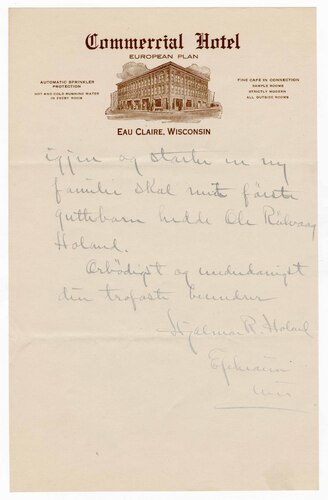 Commercial Hotel
EUROPEAN PLAN
AUTOMATIC SPRINKLER
PROTECTION
HOT AND COLD RUNNING WATER
IN EVERY ROOM
FINE CAFE IN CONNECTION
SAMPLE ROOMS
STRICTLY MODERN
ALL OUTSIDE ROOMS
EAU CLAIRE, WISCONSIN
igjen og starter en ny
familie skal mit första
guttebarn hedde Ole Rölvaag
Holand.
Ærbödigst og underdanigst
din trofaste beundrer
Hjalmar R. Holand
Ephraim
Wis